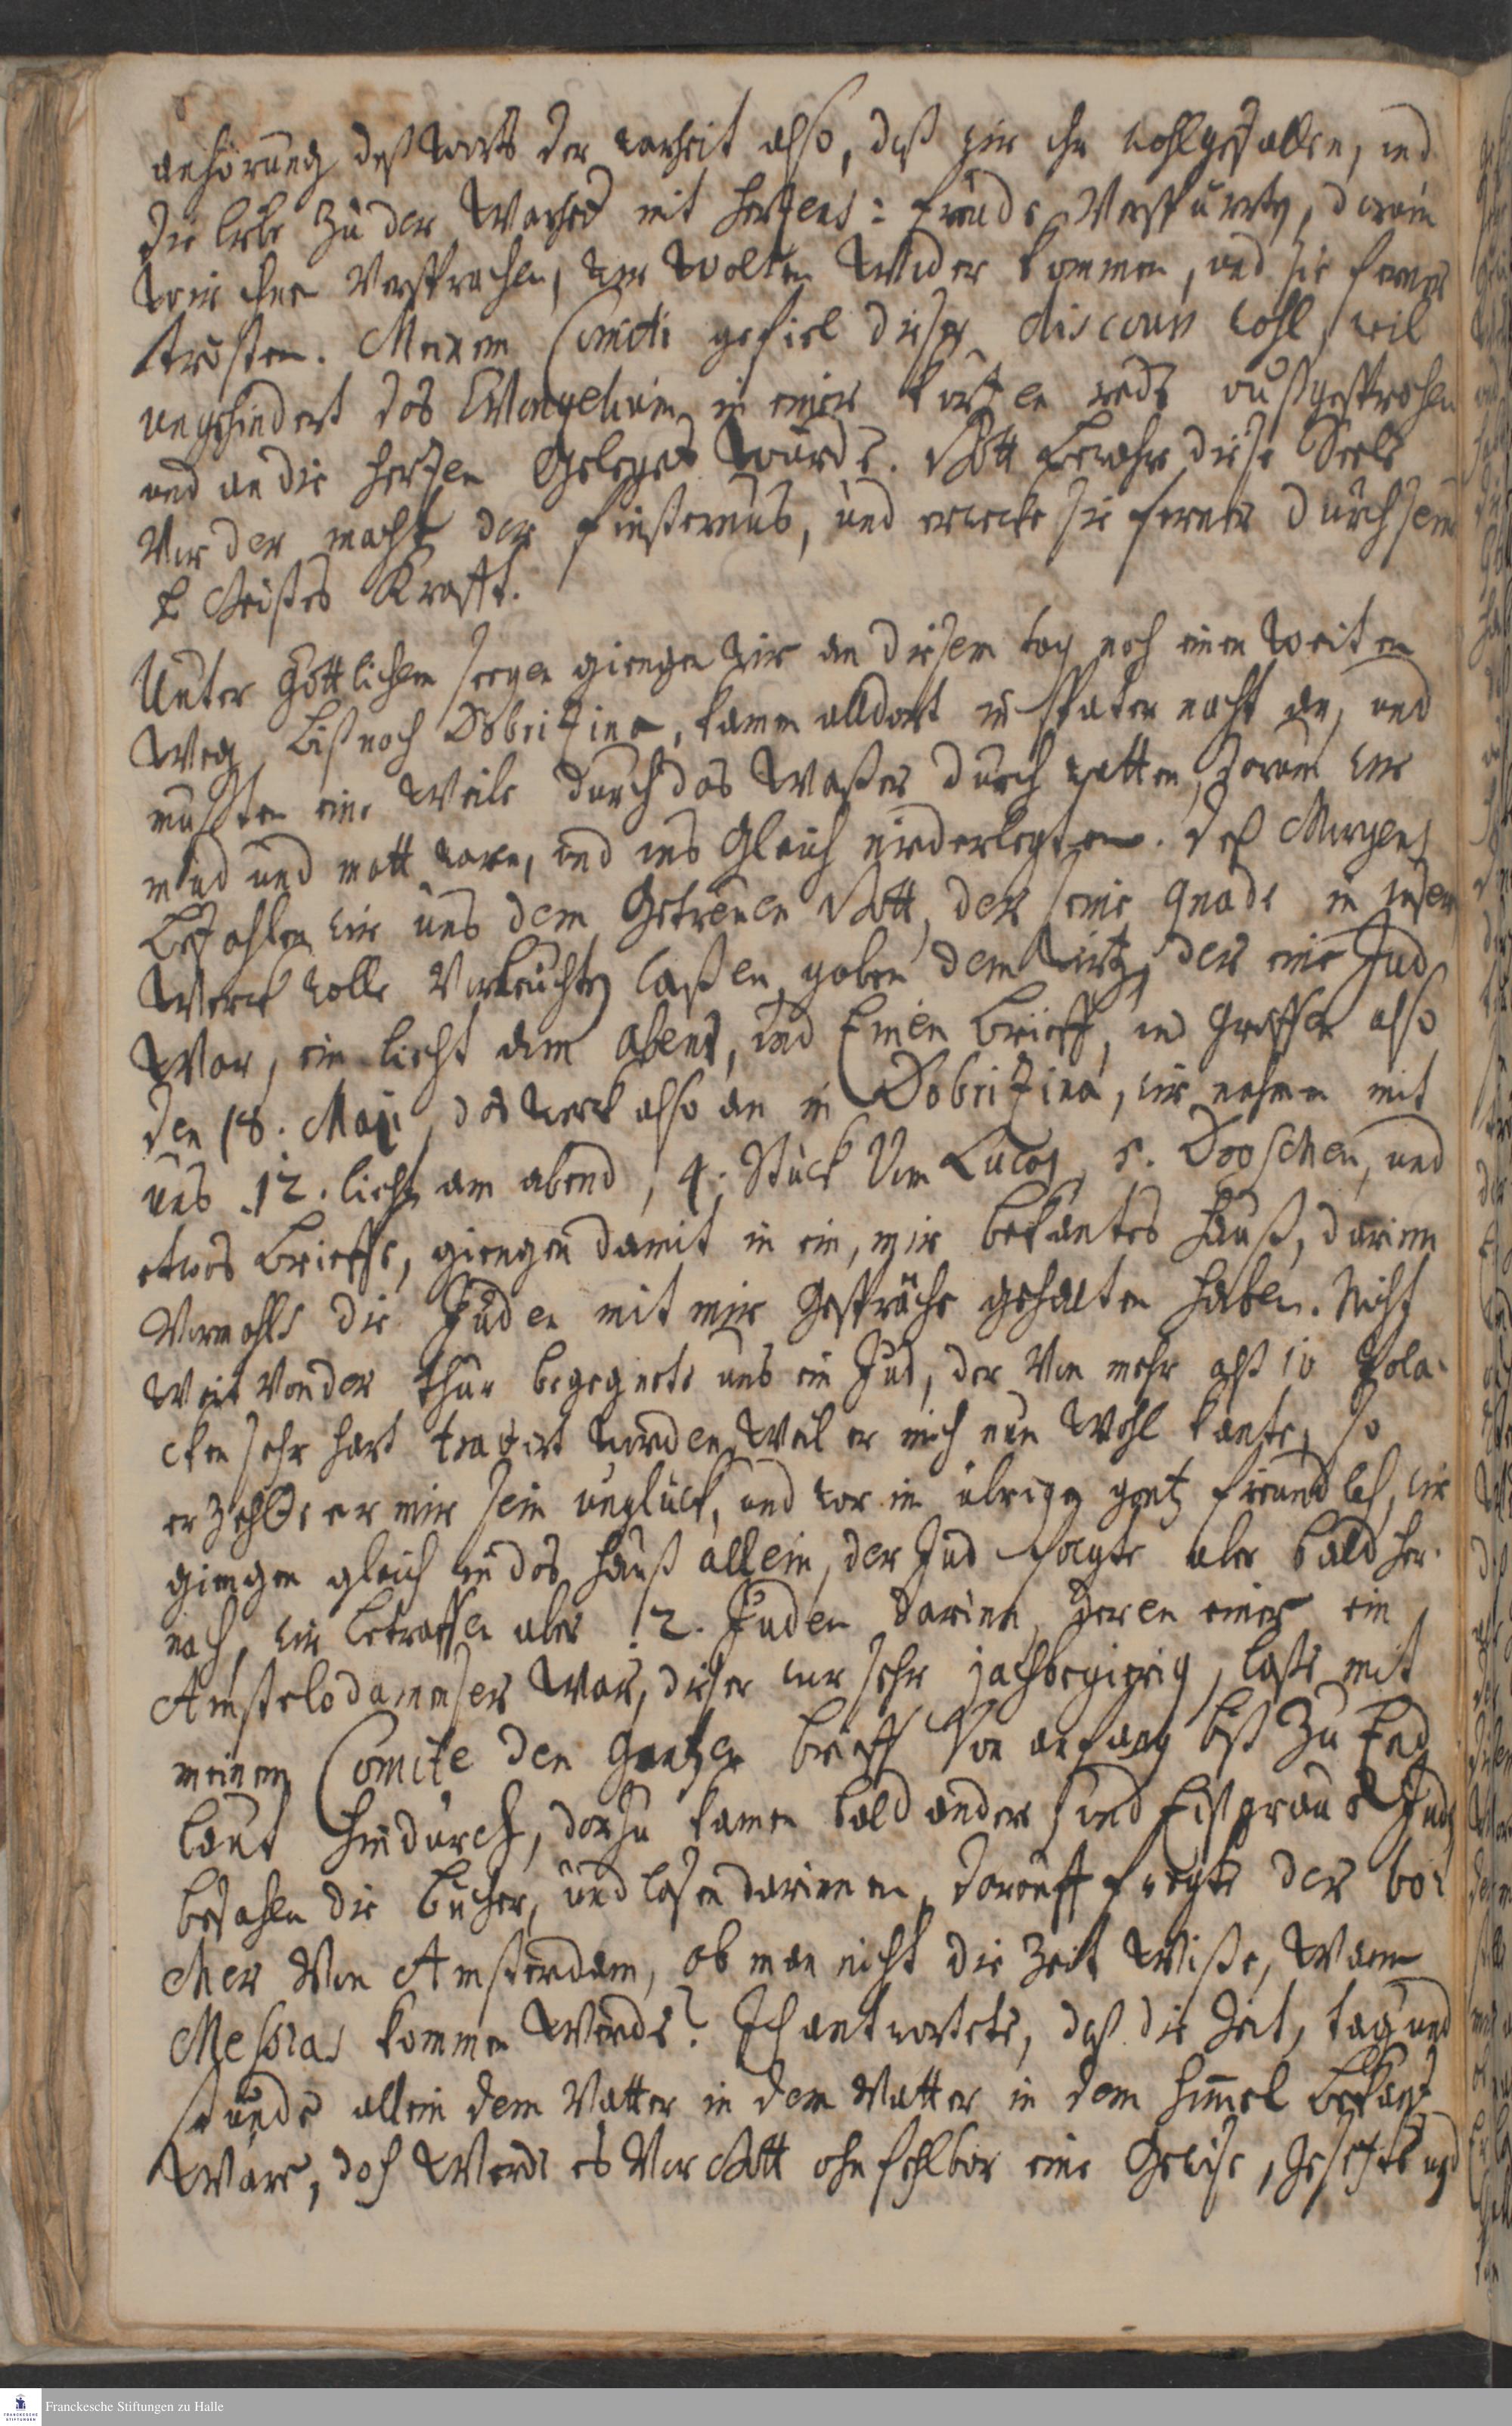 anhörung deß Worts der warheit also, daß wir ihr wohlgefallen, und
die liebe zu der Warheit mit hertzens-freude verspürten, darum
wir ihr versprachen, wir wolten wider kommen, und sie ferner
trösten. Meinem Comiti gefiel dieser discours wohl, weil
ungehindert das Evangelium in einer kurtzen rede außgesprochen
und an die hertzen geleget wurde. Gott bewahre diese Seele
vor der macht der finsternüs, und erwecke sie ferner durch sein
Geistes Krafft.
Unter Göttlichem seegen giengen wir an diesem tag noch einen weiten
Weg biß nach Dobritzina, kamen alldort in später nacht an, und
musten eine Weile durch das Waßer durch watten, darum wir
müd und matt waren, und uns gleich niderlegten. Deß Morgens
befahlen wir uns dem Getreuen Gott, der seine gnade in unserm
Werck wolle vorleuchten laßen, gaben dem Wirth, der eine Jud
War, ein licht am abend, und Einen Brieff, und griffen also
den 18. Maji, das werck also an in Dobritzina, wir nahmen mit
uns 12. licht am abend, 4. Stück Vom Lucas, 5. Droschen, und
etwas Brieffe, giengen damit in ein, mir bekantes hauß, darinn
Vormahls die Juden mit mir gespräche gehalten haben. Nicht
Weit Von der thür begegnete uns ein Jud, der Von mehr alß 10 Pola-
cken sehr hart tractirt worden, Weil er mich nun Wohl kante, so
erzehlte er mir sein unglück, und war im übrigen gantz freundlich, wir
giengen gleich in das hauß allein, der Jud folgte aber bald her-
nach, wir betraffen aber 12. Juden darinn, deren einer ein
Amstelodammser War, dieser war sehr begierig, laße mit
meinem Comite den gantzen brieff Von anfang biß zu End
laut hindurch, darzu kamen bald andere und Eißgraue Juden
besahen die bücher, und lasen darinnen, darauff fragte der bo-
cher Von Amsterdam, ob man nicht die Zeit wiße, Wann
Messias kommen Werde? Ich antwortete, daß die Zeit, tag und
stunde allein dem Vatter in dem Vatter in dem himmel bekant
Wäre, doch Werde es Vor Gott ohnfehlbar eine Gewiße, gesetzte und